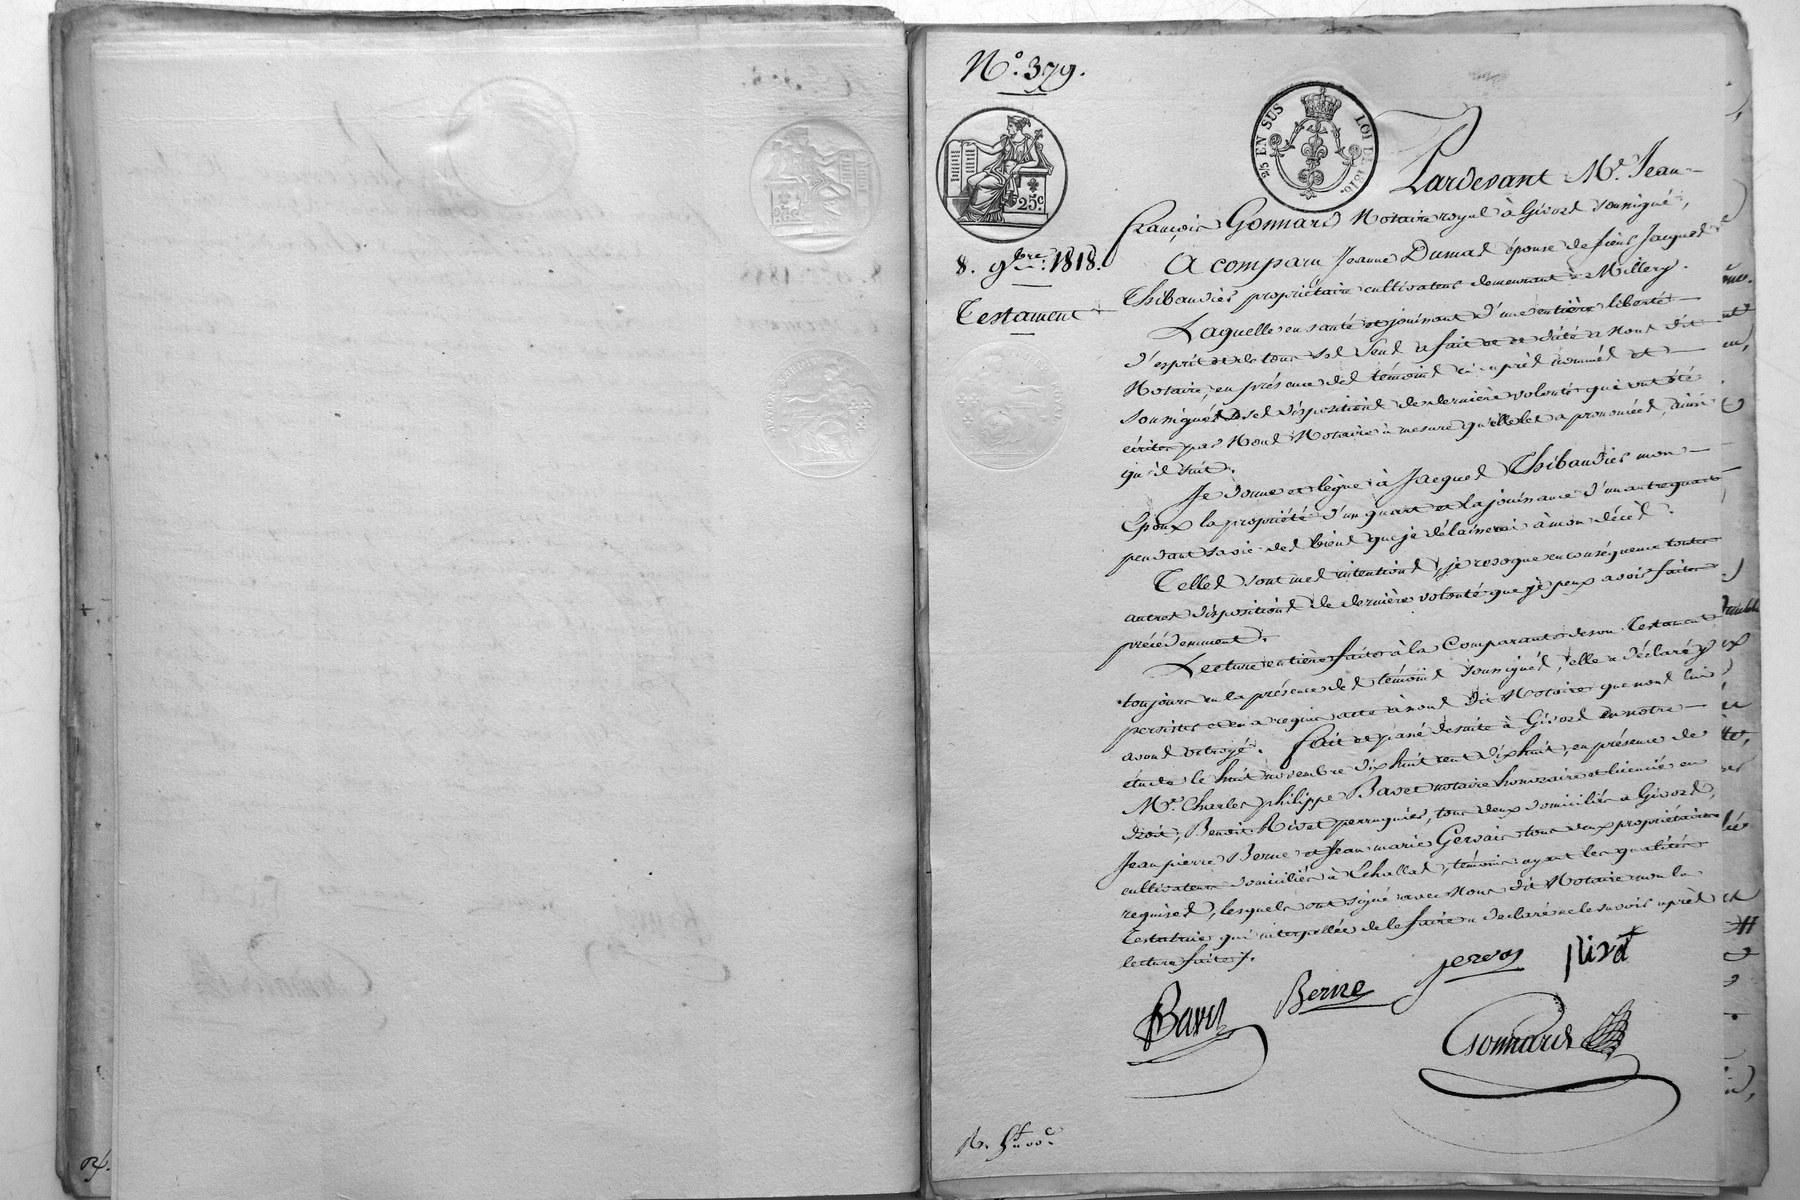 N.° 379.
25 EN SUS LOI DE 1816.
25 c
8. 9bre 1818.
Testament
Pardevant Me. Jean-
François Gonnard Notaire royal à Givors soussigné,
A comparu Jeanne Dumas épouse de sieur Jacques
Thibaudier propriétaire cultivateur demeurant à Millery.
Laquelle en santé et jouissant d'une entière liberté
d'esprit et de tous ses sens a fait et dicté à Nous dit
Notaire, en présence des témoins ci-après nommés et
soussignés ses dispositions de dernière volonté qui ont été
écrites par Nous Notaire à mesure qu'elle les a prononcées, ainsi
qu'il suit.
Je donne et lègue à Jacques Thibaudier mon
Epoux la propriété d'un quart et la jouissance d'un autre quart
pendant sa vie des biens que je délaisserai à mon décès.
Telles sont mes intentions, je révoque en conséquence toutes
autres dispositions de dernière volonté que je peux avoir faites
précédemment.
Lecture entière faite à la Comparante de son Testament
toujours en la présence des témoins soussignés, elle a déclaré y
persister et en a requis acte à nous dit Notaire que nous lui
avons octroyé. fait et passé de suite à Givors en notre
étude le huit novembre dix huit cent dix huit, en présence de
Me. Charles philippe Bavet notaire honoraire et licencié en
droit, Benoit Rivet perruquier, tous deux domiciliés à Givors,
Jean pierre Berne et Jean marie Gervais tous deux propriétaires
cultivateurs domiciliés à Echallas, témoins ayant les qualités
requises, lesquels ont signé avec Nous dit Notaire non la
Testatrice qui interpellée de le faire a déclaré ne le savoir après
lecture faite.
Rivet
Berne
Bavet
Gonnard